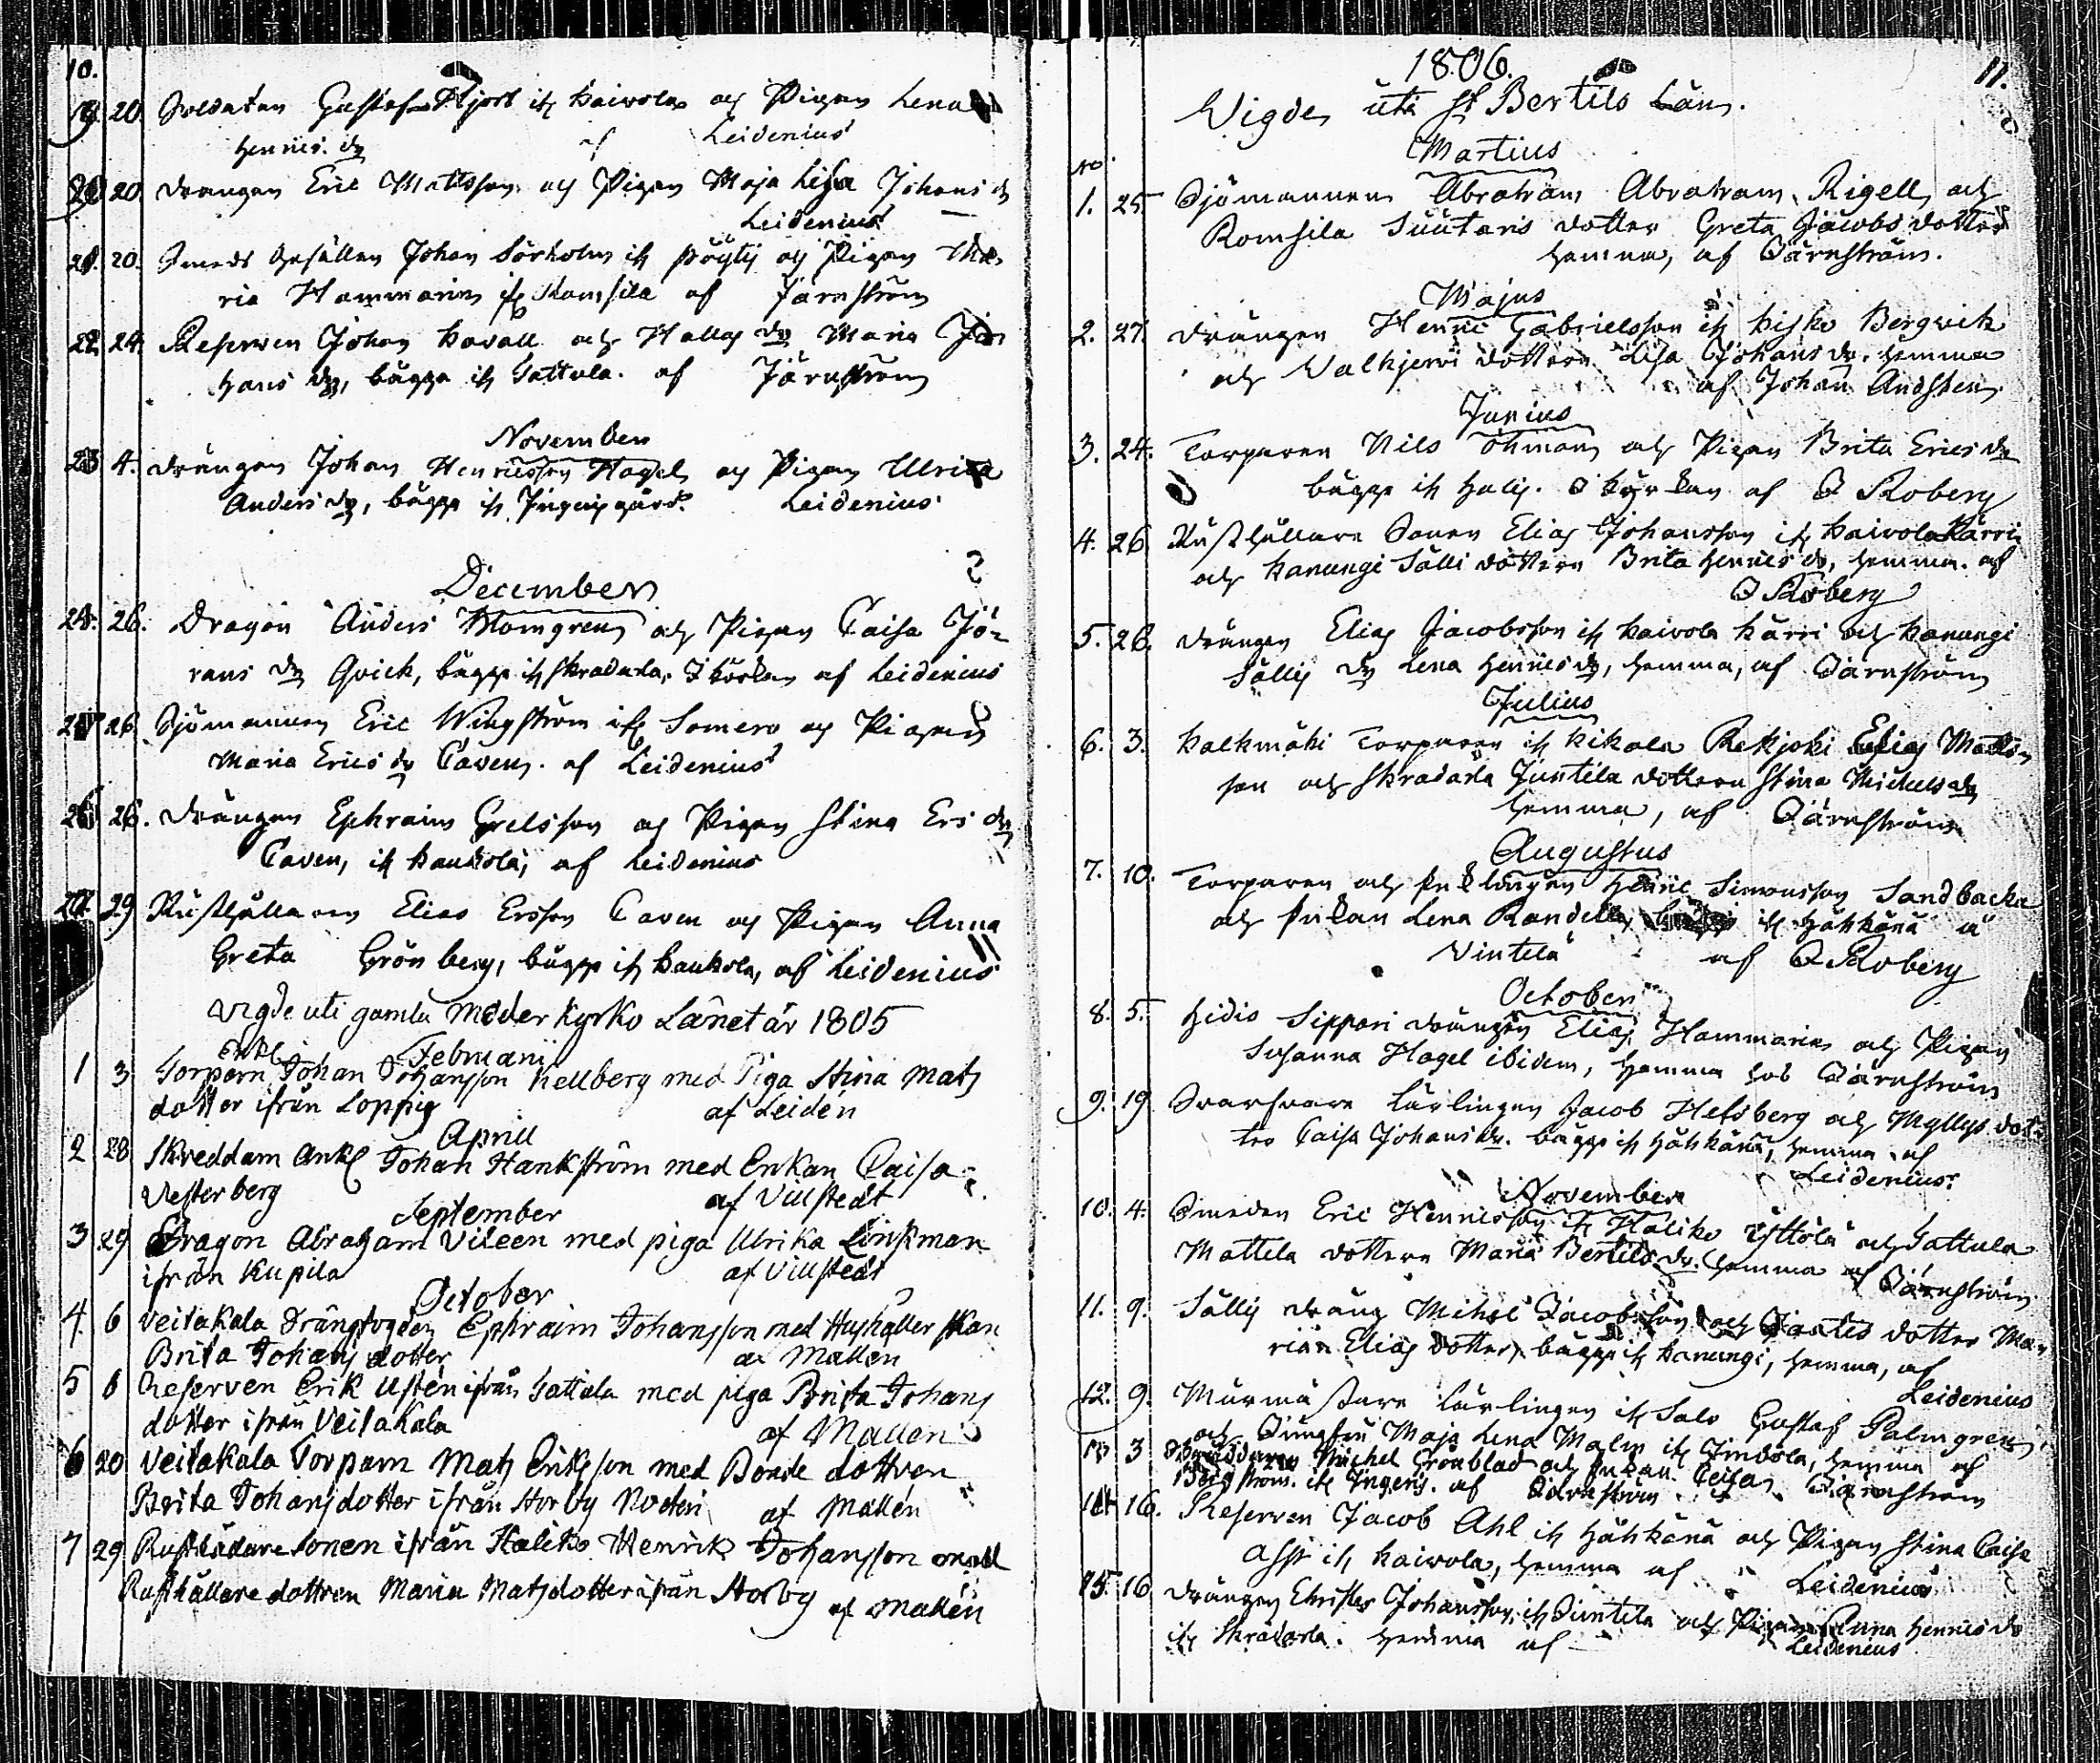 10.
19. 20. Soldaten Gustaf Hjort ifr Kaivola och Pigan Lena
Henrics dr af Leidenius
20 20 Drängen Eric Mattsson och Pigan Maja Lisa Johans dr
Leidenius
21. 20. Smeds Gesällen Johan Sörholm ifr Pöytis och Pigan Ma-
ria Hammarin ifr Romsila af Järnström
22 24. Reserven Johan Kavall och Hallas dr Maria Jo-
hans dr, bägge ifr Sattula. af Järnström
November
23 4. Drängen Johan Henricsson Hagel och Pigan Ulrica
Anders dr, bägge ifr Leidenius
December
24. 26. Dragon Anders Blomgren och Pigan Caisa Jö-
rans dr Qvick, bägge ifr Skradarla, I Kyrkan af Leidenius
25 26. Sjömannen Eric Wingström ifr Somero och Pigan
Maria Erics dr Caven. af Leidenius
26 26. Drängen Ephraim Grelsson och Pigan Stina Ers dr
Caven, ifr Kaukola, af Leidenius
27. 29 Rusthållaren Elias Ersson Caven och Pigan Anna
Greta Grönberg, bägge ifr Kaukola, af Leidenius
vigde uti gamla Moder Kyrko Länet år 1805
Februarii
1 3 Torparn Enkl Johan Johansson Kellberg med Piga Stina Mats
dotter ifrån Loppis af Leidén
Aprill
2 28 Skreddarn Ankl Johan Hankström med Enkan Caisa
Vesterberg af Villstedt
September
3 29 Dragon Abraham Vileen med piga Ulrika Linkman
ifrån Kupila af Villstedt
October
4. 6 Veitakala Drängfogden Ephraim Johansson med Hushållerskan
Brita Johans dotter af Mallén
5 6 Reserven Erik Ustén ifrån Sattula med piga Brita Johans
dotter ifrån Veitakala af Mallén
6 20 Veitakala Torparn Mats Eriksson med Bonde dottren
Brita Johansdotter ifrån Storby af Mallén
7 29 Rusthållare sonen ifrån Haliko Henrik Johansson med
Rusthållare dottren Maria Matsdotter ifrån Storby af Mallén
1806. 11.
Vigde uti St Bertils Län.
Martius
No
1. 25. Sjömannen Abraham Abraham. Rigell och
Romsila Suutaris dotter Greta Jacobs dotter
hemma, af Järnström.
Majus
2. 27. Drängen Henric Gabrielsson ifr Kisko Bergvik
och Valkjervi dottren Lisa Johans dr. hemma
af Johan Andsten
Junius
3. 24. Torparen Nils Öhman och Pigan Brita Erics dr
bägge ifr Halis. I Kyrkan af O Roberg
4. 26. Rusthållare Sonen Elias Johansson ifr Kaivola Kärri
och Kanungi Sälli dottren Brita Henrics dr, hemma. af
O Roberg
5. 26. Drängen Elias Jacobsson ifr Kaivola Kärri och Kanungi
Sälli dr Lena Henrics dr, hemma, af Järnström
Julius
6. 3. Kalkmäki Torparen ifr Kikala Rekjoki Elias Matts-
son och Skradarla Juntila dottren Stina Michels dr
hemma, af Järnström
Augustus
7. 10. Torparen och Enklingen Henric Simonsson Sandbacka
och Enkan Lena Randell, ifr Hähkänä å
Vintelä af O Roberg
October
8. 5. Hidis Sippari Drängen Elias Hammarin och Pigan
Susanna Hagel ibidem, hemma hos Järnström
9. 19. Svarfvare Lärlingen Jacob Helsberg och Myllys dot-
ter Caisa Johans dr. bägge ifr Hähkänä, hemma af
Leidenius.
November
10. 4. Smeden Eric Henricsson ifr Haliko Yttölä och Sattula
Mattela dottren Maria Bertils dr. hemma af Järnström
11. 9. Sälli dräng Michel Jacobsson och dotter Ma-
ria Elias dotter, bägge ifr Kanungi, hemma, af
Leidenius
12. 9. Murmästare Lärlingen ifr Salo Gustaf Palmgren,
och Jungfru Maja Lena Malm ifr hemma af
Järnström
13 3 Skräddaren Michel Grönblad och Enkan Caisa
Bergström. ifr Ingeris. af Järnström
14 16. Reserven Jacob Ahl ifr Hähkänä och Pigan Stina Caisa
Asp ifr Kaivola, hemma af Leidenius
15. 16 Drängen Christer Johansson, ifr Juntila och Pigan Anna Henrics dr
ifr Skradarla. hemma af Leidenius